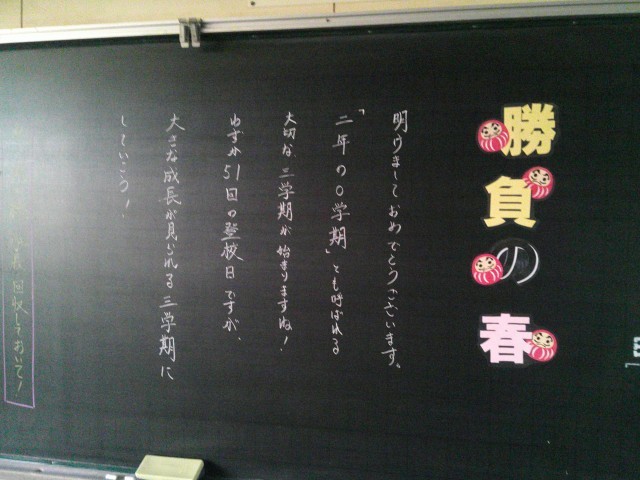 勝負の春
明けましておめでとうございます。
「二年の0学期」とも呼ばれる
大切な、三学期が始まりますね！
わずか51回の登校日ですが、
大きな成長が見られる三学期に
していこう！
回収しておいて！